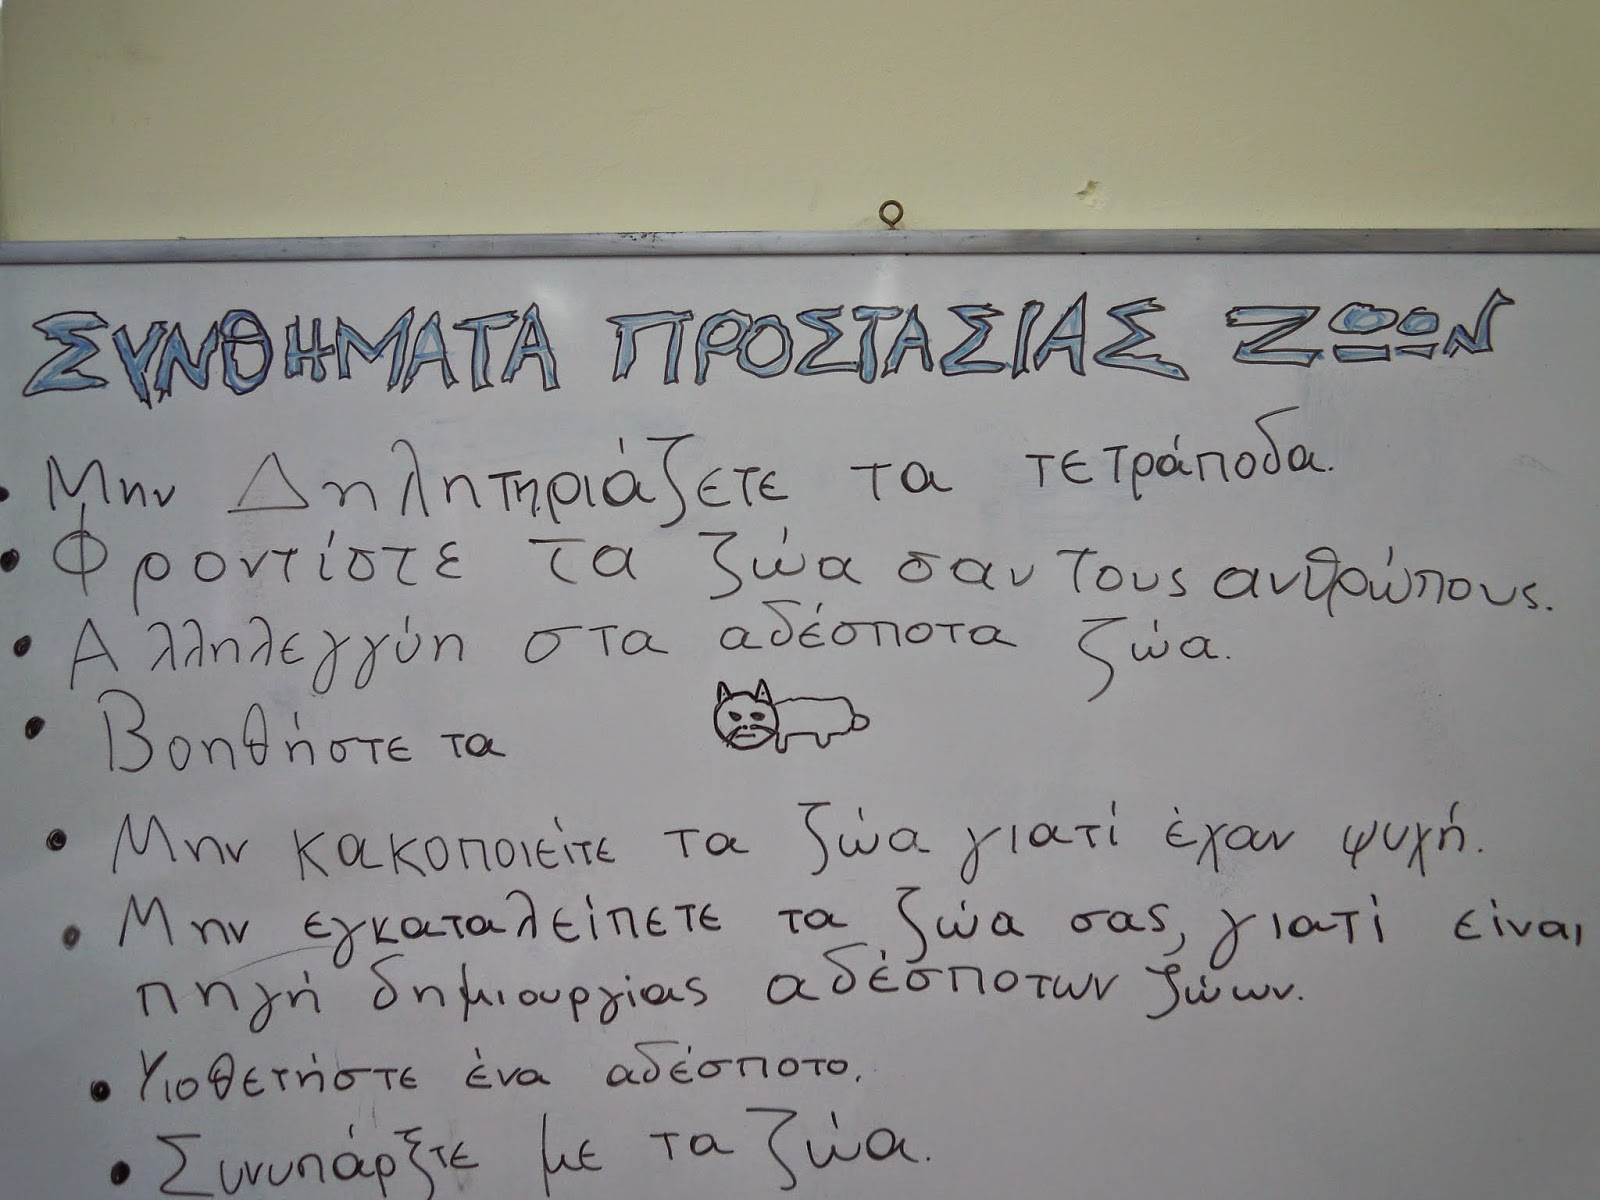 ΣΥΝΘΗΜΑΤΑ ΠΡΟΣΤΑΣΙΑΣ ΖΩΩΝ
• Μην Δηλητηριάζετε τα τετράποδα.
• Φροντίστε τα ζώα σαν τους ανθρώπους.
• Αλληλεγγύη στα αδέσποτα ζώα.
• Βοηθήστε τα
• Μην κακοποιείτε τα ζώα γιατί έχαν ψυχή.
• Μην εγκαταλείπετε τα ζώα σας, γιατί είναι
πηγή δημιουργίας αδέσποτων ζώων.
• Υιοθετήστε ένα αδέσποτο.
• Συνυπάρξτε με τα ζώα.